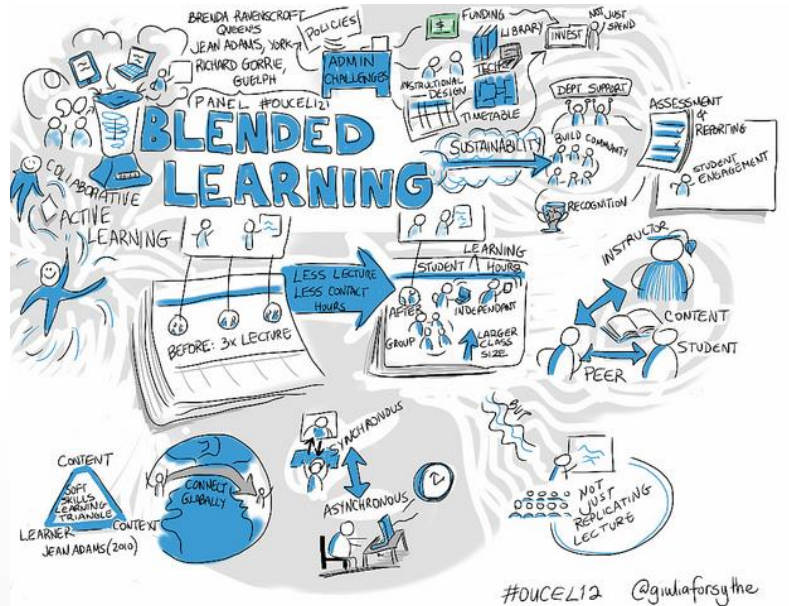 BRENDA RAVENSCROFT
QUEEN'S
JEAN ADAMS, YORK
RICHARD GORRIE,
GUELPH
PANEL #OUCEL12
POLICIES
ADMIN
CHALLENGES
FUNDING
LIBRARY
INVEST
NOT JUST
SPEND
INSTRUCTIONAL
DESIGN
TECH
TIMETABLE
BLENDED
LEARNING
SUSTAINABILITY
DEPT SUPPORT
BUILD COMMUNITY
RECOGNITION
ASSESSMENT
&
REPORTING
STUDENT
ENGAGEMENT
COLLABORATIVE
ACTIVE
LEARNING
BEFORE: 3x LECTURE
LESS LECTURE
LESS CONTACT
HOURS
LEARNING
STUDENT HOURS
AFTER
INDEPENDANT
GROUP
LARGER
CLASS
SIZE
INSTRUCTOR
CONTENT
STUDENT
PEER
CONTENT
SOFT
SKILLS
LEARNING
TRIANGLE
LEARNER
CONTEXT
JEAN ADAMS (2010)
CONNECT
GLOBALLY
SYNCHRONOUS
ASYNCHRONOUS
BUT
NOT
JUST
REPLICATING
LECTURE
#OUCEL12 @giuliaforsythe